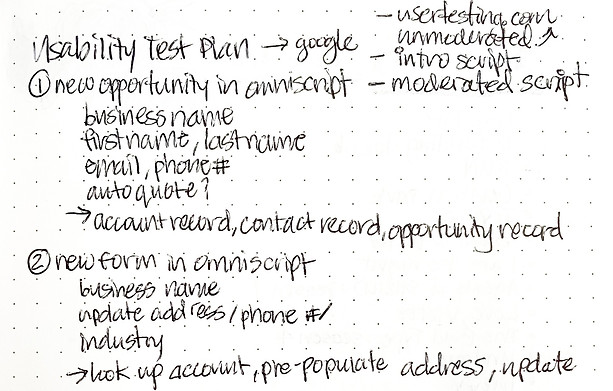 Usability Test Plan → google
- usertesting.com
unmoderated ↗
- intro script
- moderated script
① new opportunity in omniscript
business name
first name, last name
email, phone #
auto quote?
→ account record, contact record, opportunity record
② new form in omniscript
business name
update address / phone # /
industry
→ look up account, pre-populate address, update